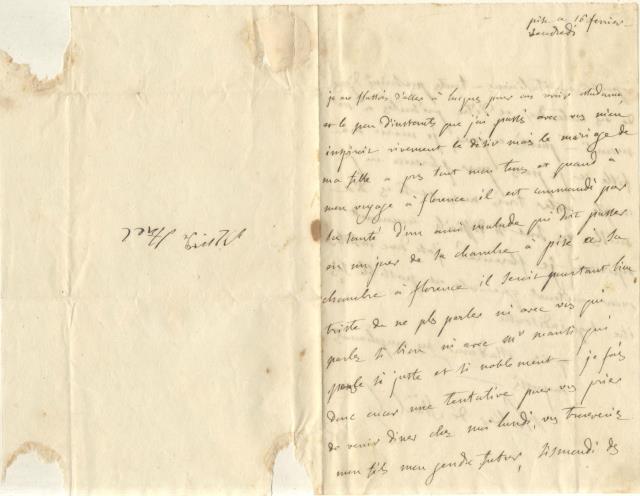 pise ce 16 fevrier
vendredi
je me flattois d'aller à lucques pour vous voir Madame
et le peu d'instants que j'ai passés avec vous m'en
inspiroit vivement le désir mais le mariage de
ma fille a pris tout mon tems et quand à
mon voyage à florence il est commandé par
la santé d'un ami malade qui doit passer
en un jour de sa chambre à pise à sa
chambre à florence il seroit pourtant bien
triste de ne plus parler ni avec vous qui
parlez si bien ni avec mr qui
pense si juste et si noblement — je fais
donc encor une tentative pour vous prier
de venir diner chez moi lundi, vous trouverez
mon fils mon gendre futur, sismondi des